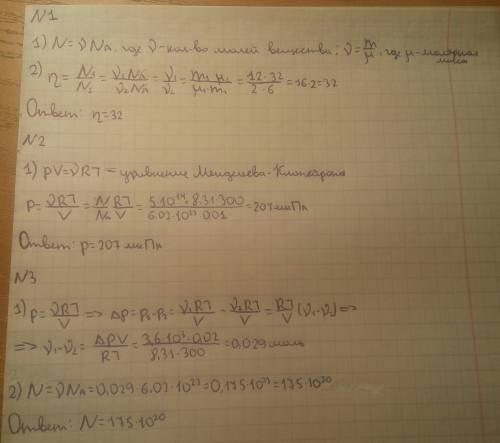 N1
1) N = νNₐ, где ν - кол-во молей вещества; ν = m/μ, где μ - молярная масса
2) η = N₁/N₂ = ν₁Nₐ/ν₂Nₐ = ν₁/ν₂ = m₁μ₂/μ₁m₂ = 12·32/2·6 = 16·2 = 32
Ответ: η = 32
N2
1) pV = νRT - уравнение Менделеева-Клапейрона
P = νRT/V = N RT/Nₐ V = 5·10¹⁴·8.31·300/6.02·10²³·0.01 = 207 мкПа
Ответ: p = 207 мкПа
N3
1) p = νRT/V => Δp = p₁-p₂ = ν₁RT/V - ν₂RT/V = RT/V (ν₁-ν₂) =>
=> ν₁-ν₂ = ΔPV/RT = 3,6·10³·0,02/8,31·300 = 0,029 моль
2) N = νNₐ = 0,029·6,02·10²³ = 0,175·10²³ = 175·10²⁰
Ответ: N = 175·10²⁰